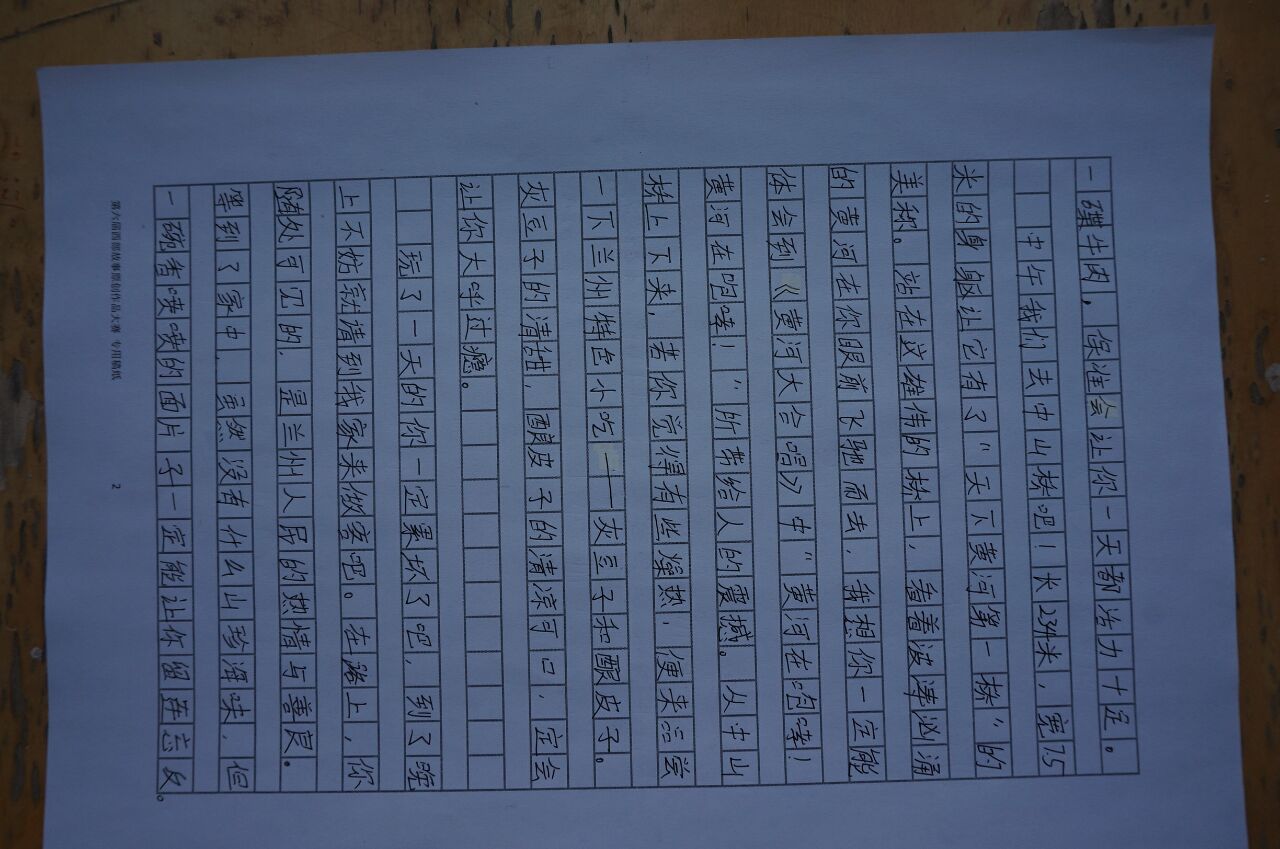 一碟牛肉，保准会让你一天都活力十足。
中午我们去中山桥吧！长234米，宽7.5
米的身躯让它有了"天下黄河第一桥"的
美称。站在这雄伟的桥上，看着波涛汹涌
的黄河在你眼前飞驰而去，我想你一定能
体会到《黄河大合唱》中"黄河在咆哮！
黄河在咆哮！"所带给人的震撼。从中山
桥上下来，若你觉得有些燥热，便来品尝
一下兰州特色小吃——灰豆子和酿皮子。
灰豆子的清甜，酿皮子的清凉可口，定会
让你大呼过瘾。
玩了一天的你一定累坏了吧，到了晚
上不妨就请到我家来做客吧。在路上，你
随处可见的，是兰州人民的热情与善良。
等到了家中，虽然没有什么山珍海味，但
一碗香喷喷的面片子一定能让你留连忘返。
第六届西部故事原创作品大赛 专用稿纸
2